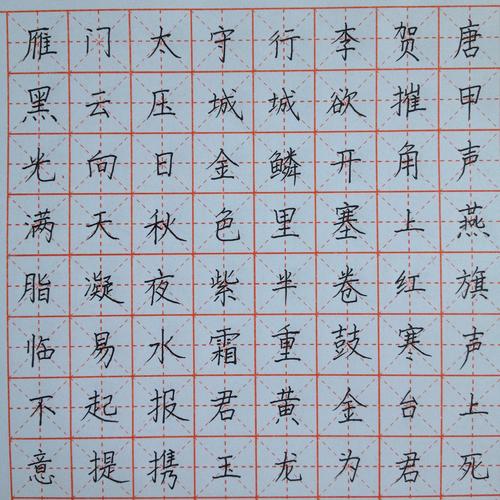 雁门太守行李贺唐
黑云压城城欲摧甲
光向日金鳞开角声
满天秋色里塞上燕
脂凝夜紫半卷红旗
临易水霜重鼓寒声
不起报君黄金台上
意提携玉龙为君死